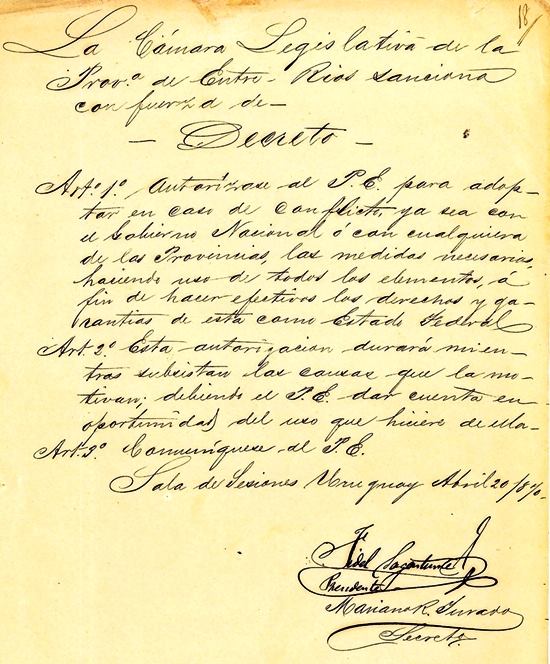 18
La Cámara Legislativa de la
Prov.ª de Entre-Rios sanciona
con fuerza de—
— Decreto —
Art.º 1º Autorízase al P.E. para adop-
tar en caso de conflicto, ya sea con
el Gobierno Nacional ó con cualquiera
de las Provincias, las medidas necesarias,
haciendo uso de todos los elementos, á
fin de hacer efectivos los derechos y ga-
rantias de esta como Estado Federal
Art. 2º Esta autorizacion durará mien-
tras subsistan las causas que la mo-
tivan; debiendo el P.E. dar cuenta en
oportunidad del uso que hiciere de ella-
Art. 3º Comuníquese al P.E.
Sala de Sesiones Uruguay Abril 20/870-
Fidel
Presidente
Mariano R. Jurado
Secret.º